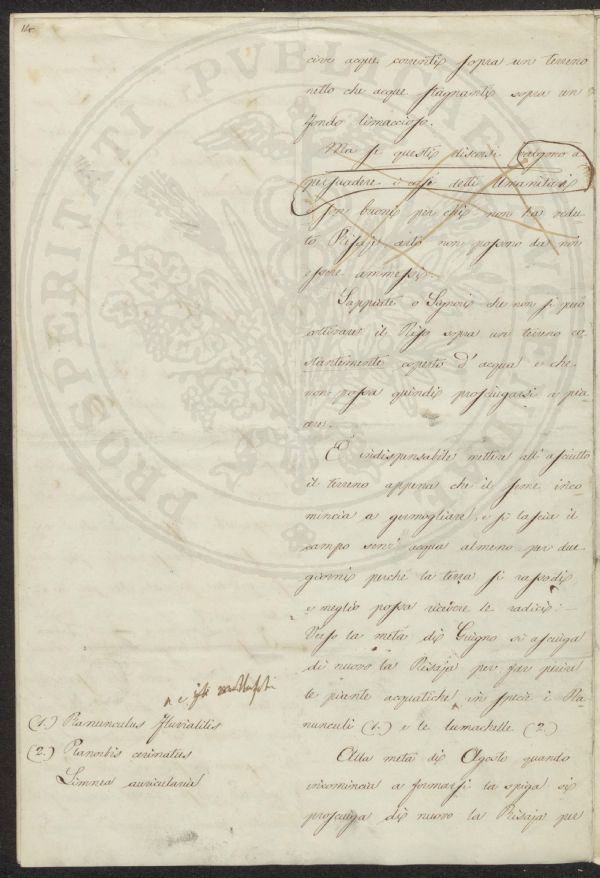 cive acque correnti sopra un terreno
netto che acque stagnanti sopra un
fondo limaccioso.
Ma se questi discorsi valgono a
persuadere i così detti Umanitari
e son buoni per chi non ha vedu-
to Risaje ciò non possono da noi
essere ammessi.
Sappiate o Signori che non si può
coltivare il Riso sopra un terreno co-
stantemente coperto d'acqua e che
non possa quindi prosciugarsi a pia-
cere.
È indispensabile mettere all'asciutto
il terreno appena che il seme inco
mincia a germogliare, e si lascia il
campo senz'acqua almeno per due
giorni perché la terra si rassodi,
e meglio possa ricevere le radici. -
Verso la metà di Giugno si asciuga
di nuovo la Risaja per far perire
le piante acquatiche in specie i Ra-
nunculi (1.) e le lumachelle (2.)
Alla metà di Agosto quando
incomincia a formarsi la spiga si
prosciuga di nuovo la Risaja per
(1.) Ranunculus Fluvialitis
(2.) Planorbis cerinatus
Limnea auricularia
PROSPERITATI PUBLICAE